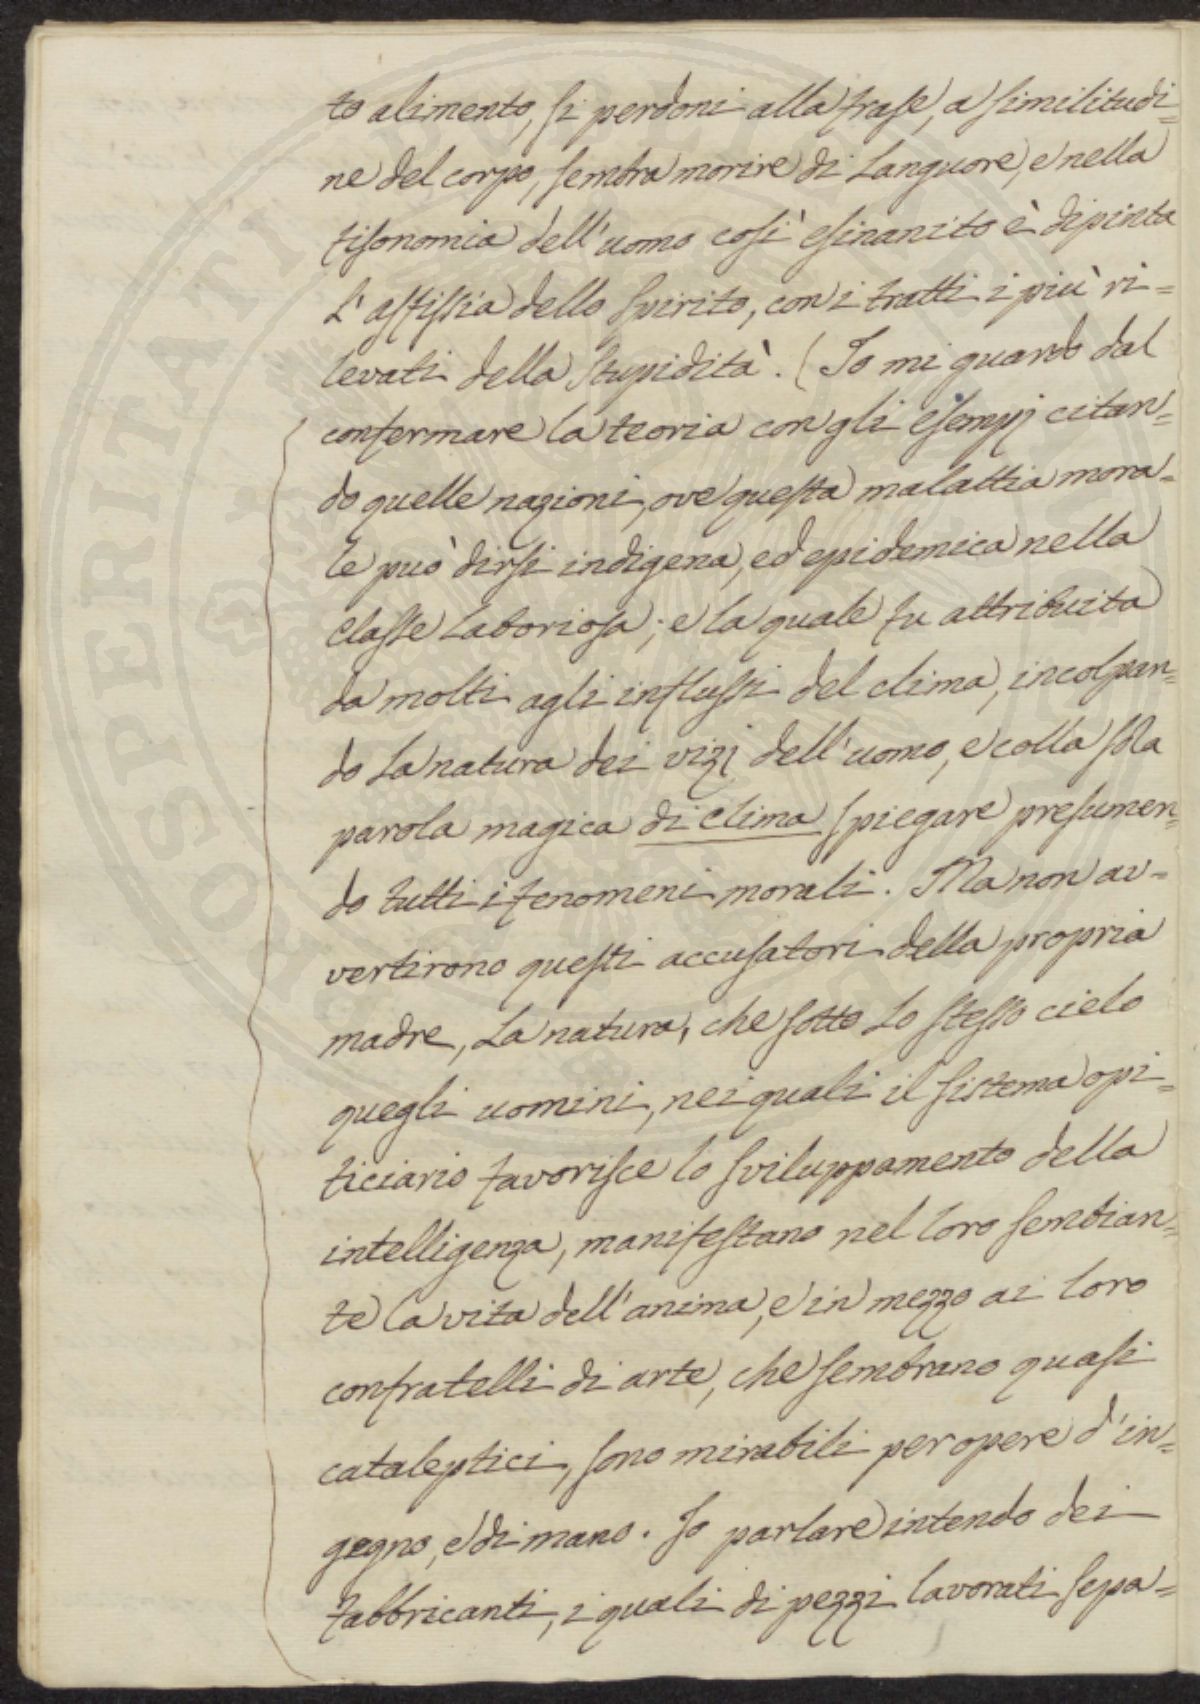 to alimento, si perdoni alla frase, a similitudi=
ne del corpo, sembra morire di languore, e nella
fisonomia dell'uomo così esinanito è dipinta
l'asfissia dello spirito, con i tratti i più ri=
levati della stupidità. (Io mi guardo dal
confermare la teoria con gli esempj citan=
do quelle nazioni, ove questa malattia mora=
le può dirsi indigena, ed epidemica nella
classe laboriosa; e la quale fu attribuita
da molti agli influssi del clima, incolpan=
do la natura dei vizj dell'uomo, e colla sola
parola magica di clima spiegare presumen=
do tutti i fenomeni morali. Ma non av=
vertirono questi accusatori della propria
madre, la natura, che sotto lo stesso cielo
quegli uomini, nei quali il sistema opi=
ficiario favorisce lo sviluppamento della
intelligenza, manifestano nel loro sembian=
te la vita dell'anima, e in mezzo ai loro
confratelli di arte, che sembrano quasi
cataleptici, sono mirabili per opere d'in=
gegno, e di mano. Io parlare intendo dei
fabbricanti, i quali di pezzi lavorati sepa=
PROSPERITATI